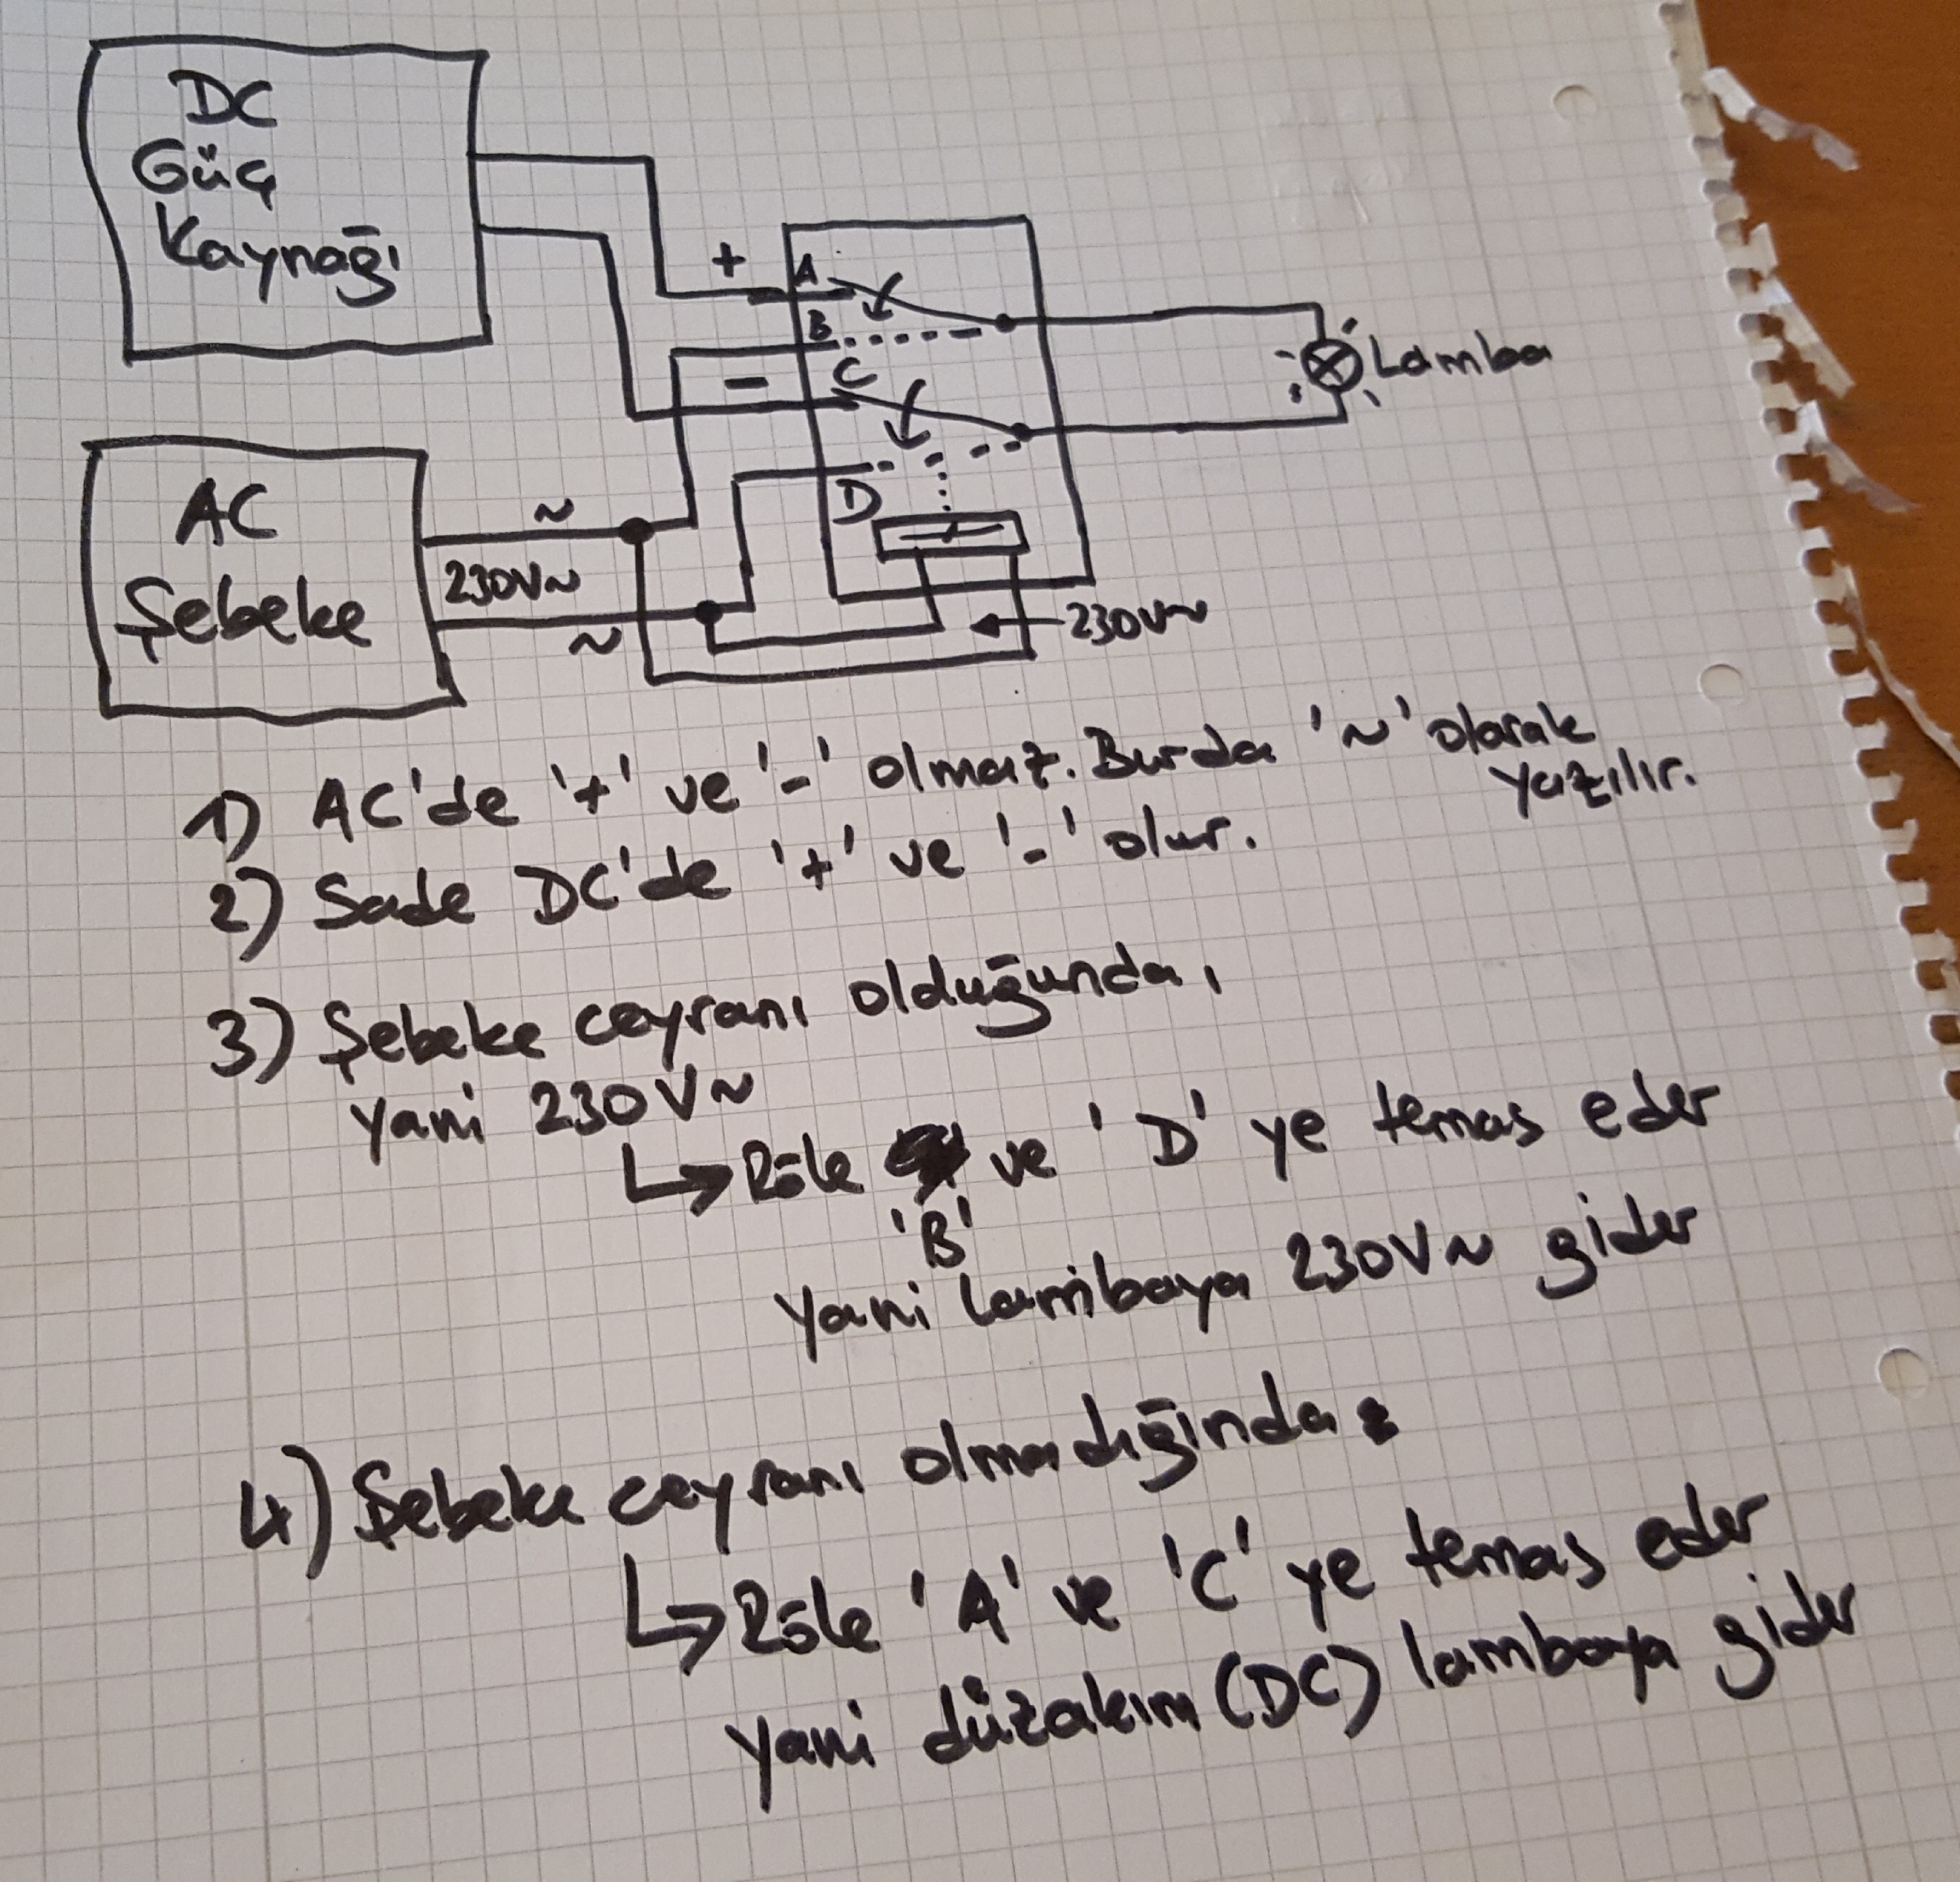 DC
Güç
Kaynağı
+
A
B
-
C
Lamba
AC
Şebeke
~
230V~
~
D
230V~
1) AC'de '+' ve '-' olmaz. Burda '~' olarak
yazılır.
2) Sade DC'de '+' ve '-' olur.
3) Şebeke ceyranı olduğunda,
yani 230V~
↳ Röle ve 'D' ye temas eder
'B'
Yani lambaya 230V~ gider
4) Şebeke ceyranı olmadığında:
↳ Röle 'A' ve 'C' ye temas eder
yani düzakım (DC) lambaya gider